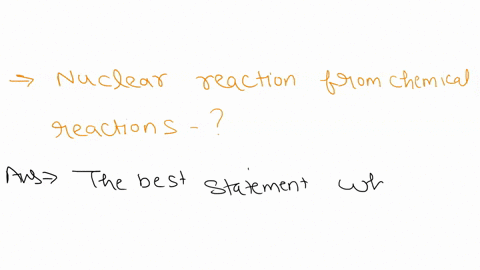 → Nuclear reaction from chemical
reactions - ?
Ans⇒ The best statement wh